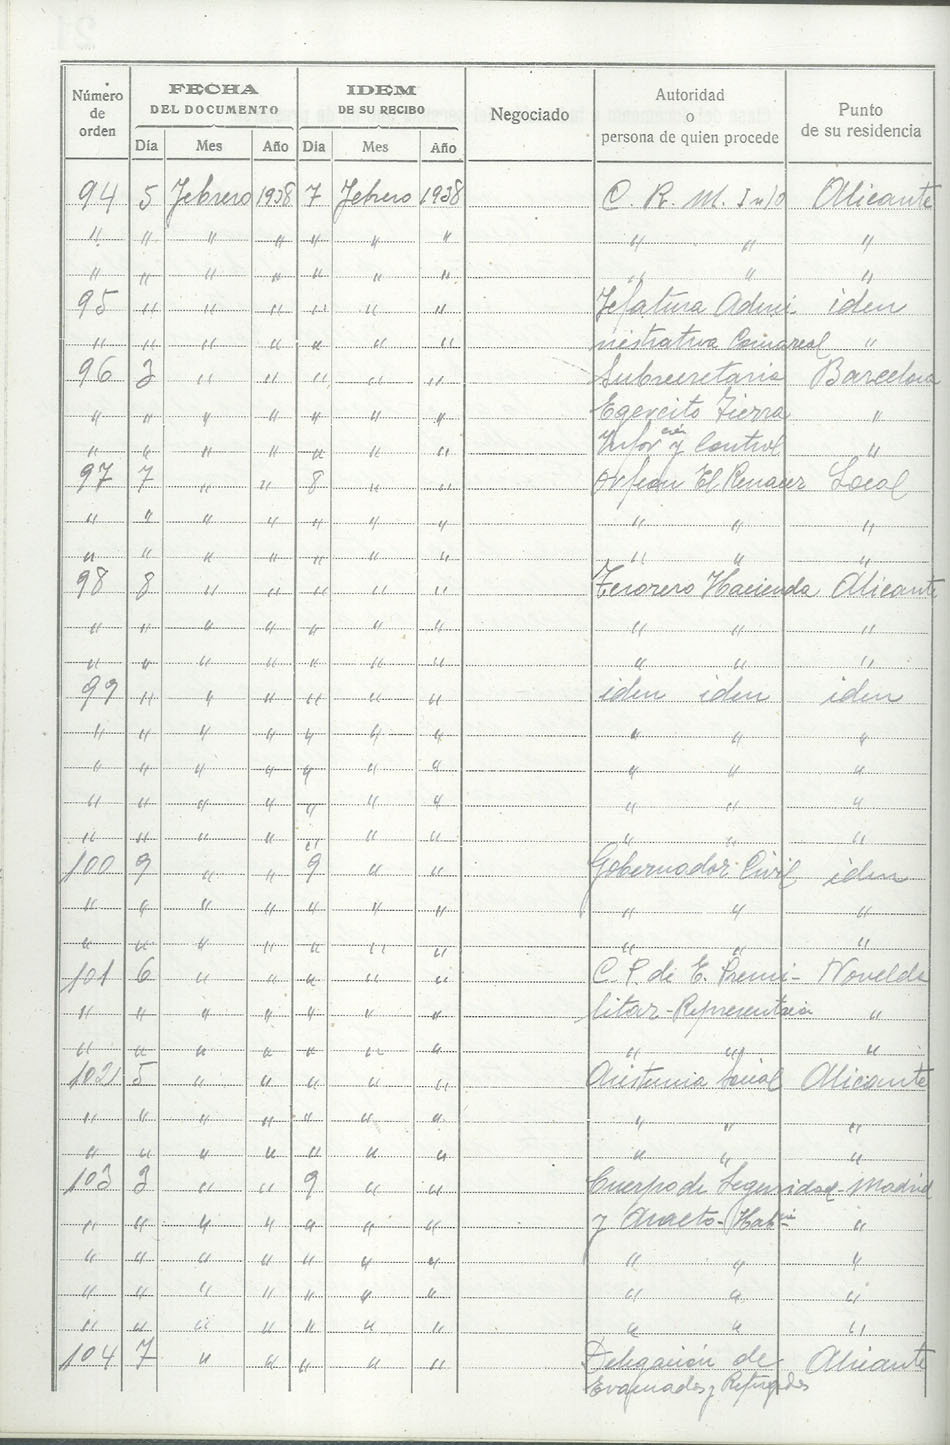 Número de orden | FECHA DEL DOCUMENTO | IDEM DE SU RECIBO | Negociado | Autoridad o persona de quien procede | Punto de su residencia
Día Mes Año Día Mes Año
94 5 Febrero 1938 7 Febrero 1938 C. R. M. I nº 10 Alicante
" " " " " " " " " "
" " " " " " " " " "
95 " " " " " " Jefatura Admi iden
" " " " " " " nistrativa Comarcal "
96 3 " " " " " Subsecretaria Barcelona
" " " " " " " Egercito Tierra "
" " " " " " " Inforción y Control "
97 7 " " 8 " " Orfeon El Renacer Local
" " " " " " " " " "
" " " " " " " " " "
98 8 " " " " " Tesorero Hacienda Alicante
" " " " " " " " " "
" " " " " " " " " "
99 " " " " " " iden iden iden
" " " " " " " " " "
" " " " " " " " " "
" " " " " " " " " "
" " " " " " " " " "
100 9 " " 9 " " Gobernador Civil iden
" " " " " " " " " "
" " " " " " " " " "
101 6 " " " " " C. P. de E. Premi- Novelda
" " " " " " " litar-Representación "
" " " " " " " " " "
102 5 " " " " " Asistencia Social Alicante
" " " " " " " " " "
" " " " " " " " " "
103 3 " " 9 " " Cuerpo de Seguridad Madrid
" " " " " " " y Asalto-Habón "
" " " " " " " " " "
" " " " " " " " " "
" " " " " " " " " "
104 7 " " " " " Delegación de Alicante
Evacuados y Refugiados